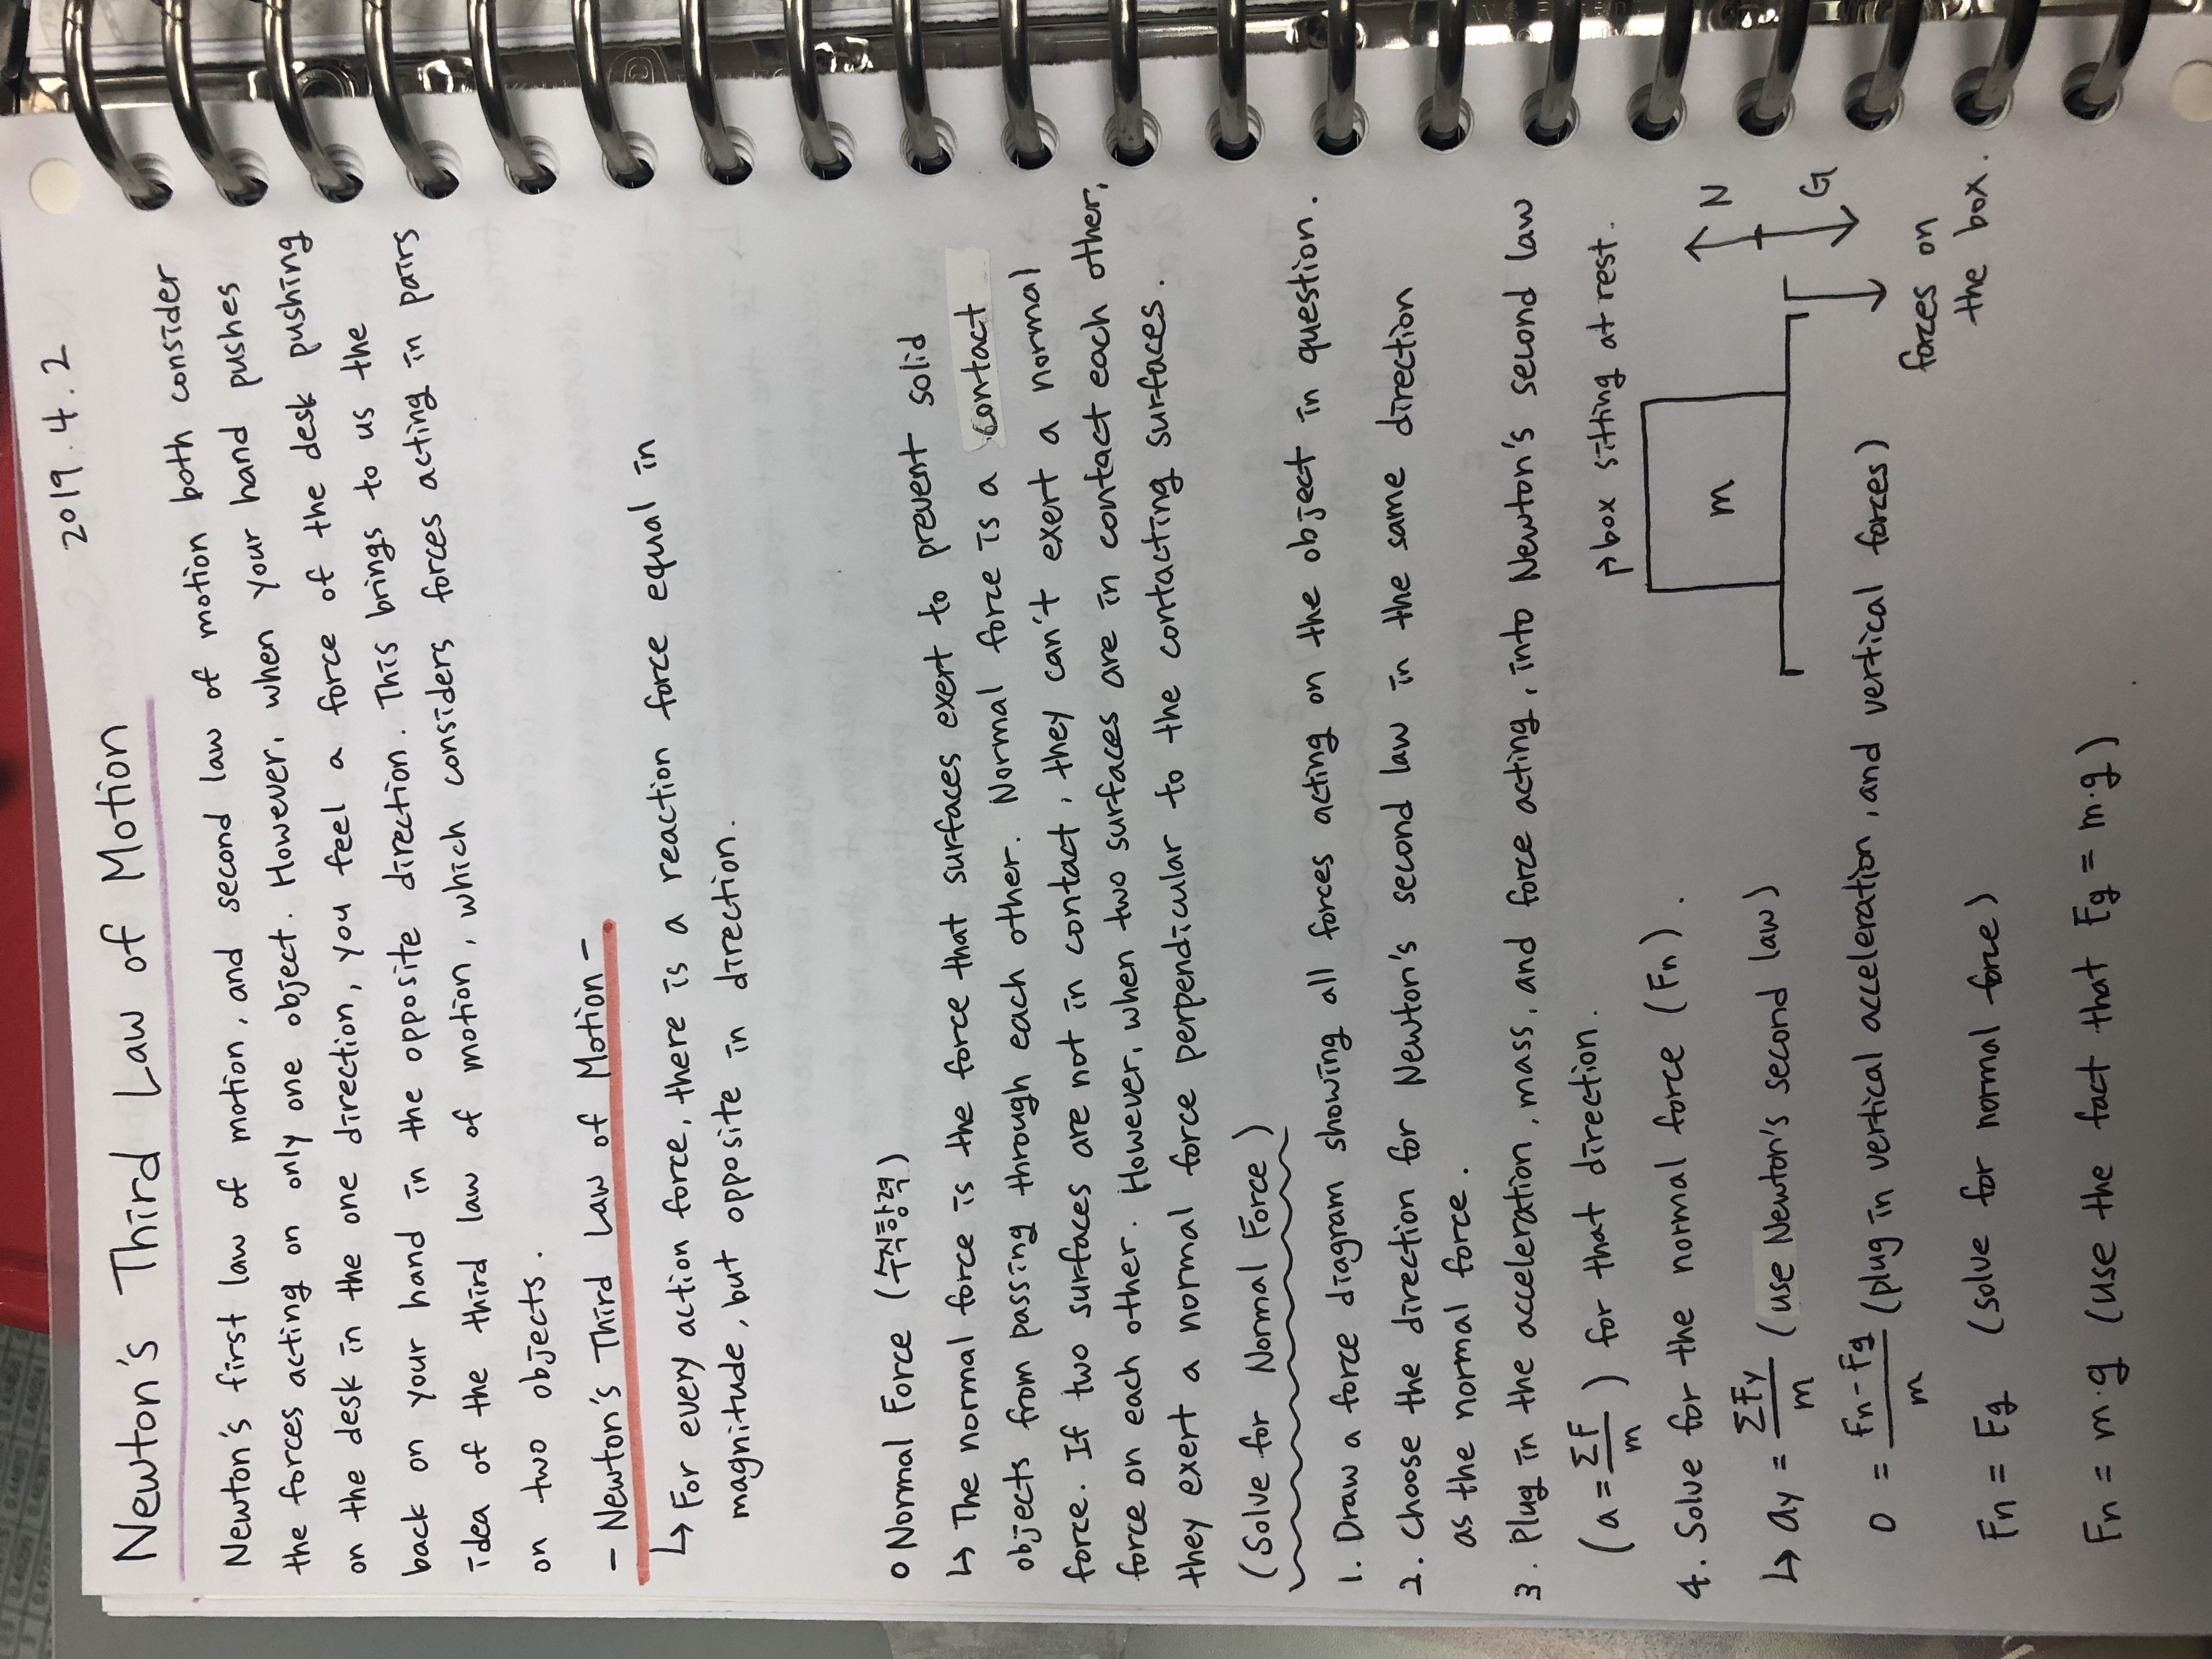 2019.4.2
Newton's Third Law of Motion
Newton's first law of motion, and second law of motion both consider
the forces acting on only one object. However, when your hand pushes
on the desk in the one direction, you feel a force of the desk pushing
back on your hand in the opposite direction. This brings to us the
idea of the third law of motion, which considers forces acting in pairs
on two objects.
- Newton's Third Law of Motion -
↳ For every action force, there is a reaction force equal in
magnitude, but opposite in direction.
o Normal Force (수직항력)
↳ The normal force is the force that surfaces exert to prevent solid
objects from passing through each other. Normal force is a contact
force. If two surfaces are not in contact, they can't exert a normal
force on each other. However, when two surfaces are in contact each other,
they exert a normal force perpendicular to the contacting surfaces.
(Solve for Normal Force)
1. Draw a force diagram showing all forces acting on the object in question.
2. Choose the direction for Newton's second law in the same direction
as the normal force.
3. Plug in the acceleration, mass, and force acting, into Newton's second law
(a = ΣF/m) for that direction.
box sitting at rest.
4. Solve for the normal force (Fn).
m
N
G
↳ ay = ΣFy/m (use Newton's second law)
forces on
the box.
0 = Fn-Fg/m (plug in vertical acceleration, and vertical forces)
Fn = Fg (solve for normal force)
Fn = m·g (use the fact that Fg = m·g)